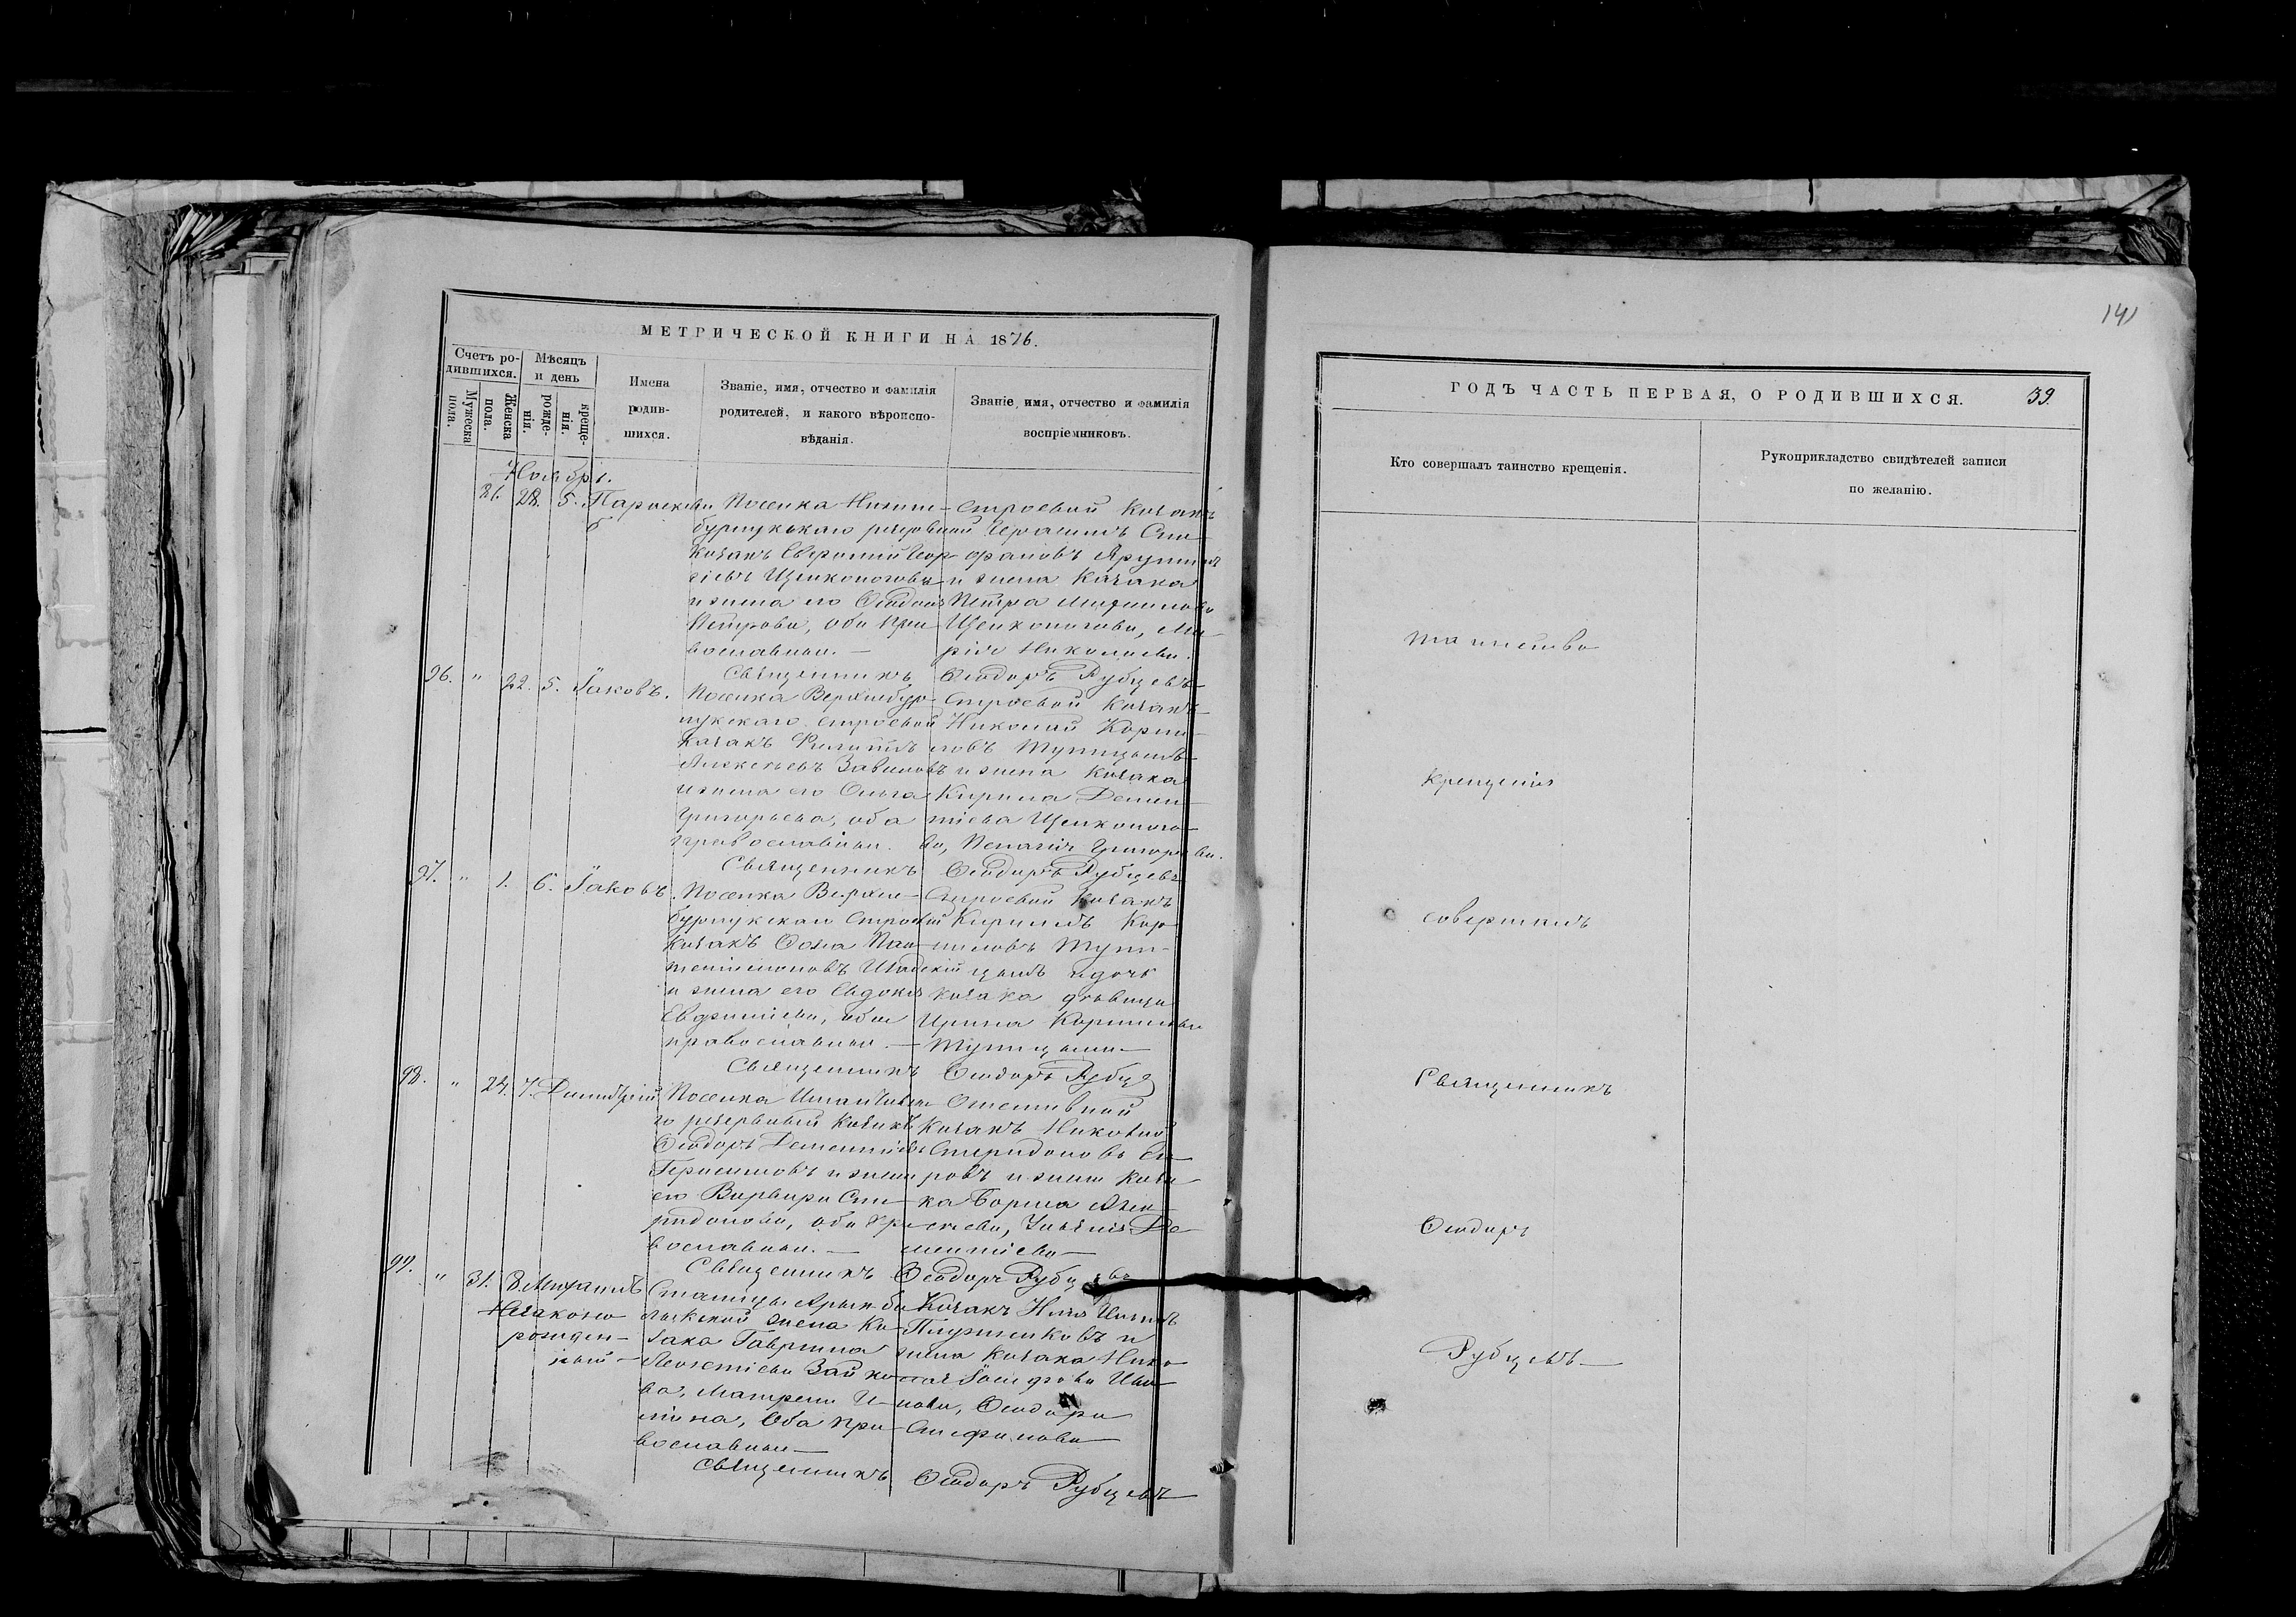 МЕТРИЧЕСКОЙ КНИГИ НА 1876.
Счетъ родившихся.
Мужеска пола.
Женска пола.
Мѣсяцъ и день
рожденія.
крещенія.
Имена родившихся.
Званіе, имя, отчество и фамилія родителей, и какого вѣроисповѣданія.
Званіе, имя, отчество и фамилія воспріемниковъ.
Ноября.
28. 5. Параскева
Поселка Нижне-
козакъ
и жена его Феодосія
Петрова, оба пра-
вославные.
Строевой Козакъ
Герасимъ Сте-
фановъ
и жена Казака
Петра Михаилова
Щелконогова, Ма-
рія Николаева.
Священникъ Феодоръ Рубцевъ
96. " 22. 5. Іаковъ.
Поселка Верхнебур-
тукскаго строевой
казакъ Филиппъ
Алексѣевъ Завиловъ
и жена его Ольга
Григорьева, оба
православные.
Строевой Козакъ
Николай Корни-
ловъ Тупицынъ
и жена Козака
Кирила Демен-
тіева Щелконого-
ва, Пелагія Григорьева.
Священникъ Феодоръ Рубцевъ
97. " 1. 6. Іаковъ.
Поселка Верхне-
буртукскаго Строевой
Козакъ Фома Пан-
и жена его Евдокія
Евфиміева, обои
православные.
Строевой Козакъ
Кирилъ Кор-
ниловъ Тупи-
цынъ и дочь
козака дѣвица
Ирина Корнилова
Тупицына
Священникъ Феодоръ Рубцевъ
98. " 24. 7. Димитрій
Поселка
го резервный Козакъ
Феодоръ Дементіевъ
Герасимовъ и жена
его Варвара Спи-
ридонова, оба пра-
вославные.
Отставной
Козакъ Николай
Спиридоновъ
и жена Коза-
ка Бориса Алек-
сѣева, Ульянія Де-
ментіева
Священникъ Феодоръ Рубцевъ
99. " 31. 8. Михаилъ
Незаконо
рожден-
ный
Станицы
жена Ко-
зака Гаврила
Леонтіева Зайко-
ва, Матрена И-
оба пра-
вославные
Козакъ Илья
Плужниковъ и
жена Козака Нико-
лая Іосифова Ива-
нова, Феодора
Стефанова
Священникъ Феодоръ Рубцевъ
141
ГОДЪ ЧАСТЬ ПЕРВАЯ, О РОДИВШИХСЯ. 39.
Кто совершалъ таинство крещенія.
Рукоприкладство свидѣтелей записи
по желанію.
таинство
крещенія
совершалъ
Священникъ
Феодоръ
Рубцевъ